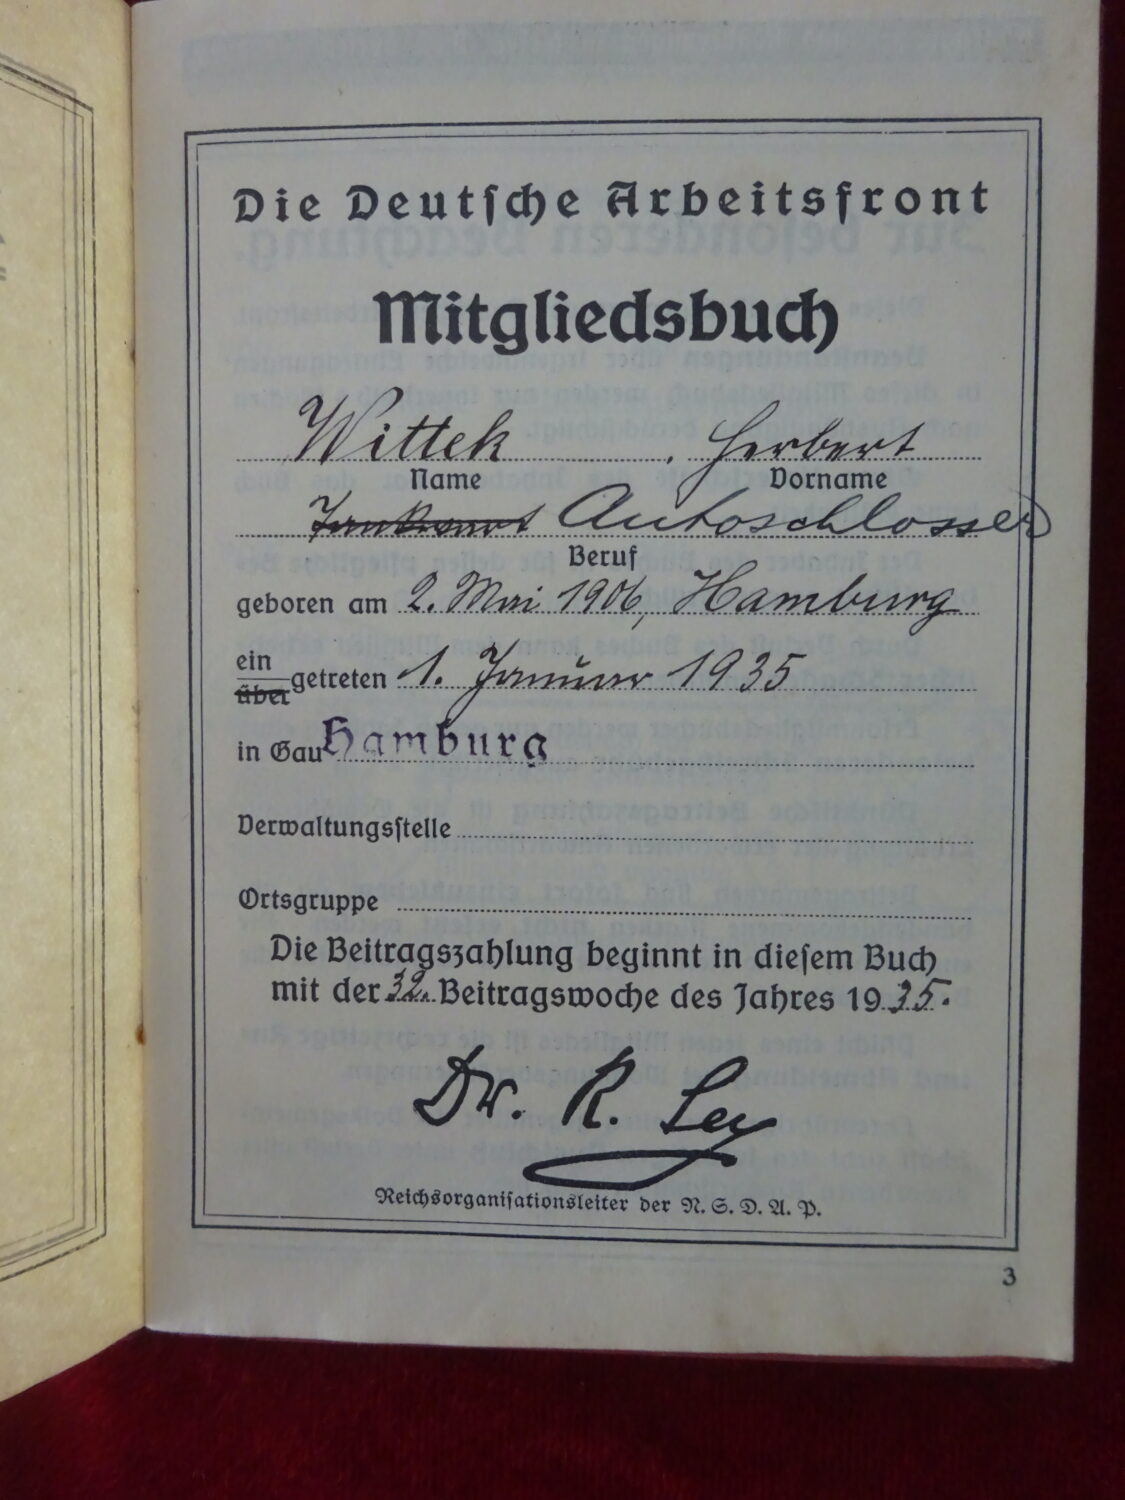 Die Deutsche Arbeitsfront
Mitgliedsbuch
Wittek, Herbert
Name Vorname
Autoschlosser
Beruf
geboren am 2. Mai 1906, Hamburg
ein
über getreten 1. Januar 1935
in Gau Hamburg
Verwaltungsstelle
Ortsgruppe
Die Beitragszahlung beginnt in diesem Buch
mit der 32. Beitragswoche des Jahres 1935.
Dr. R. Ley
Reichsorganisationsleiter der N. S. D. A. P.
3